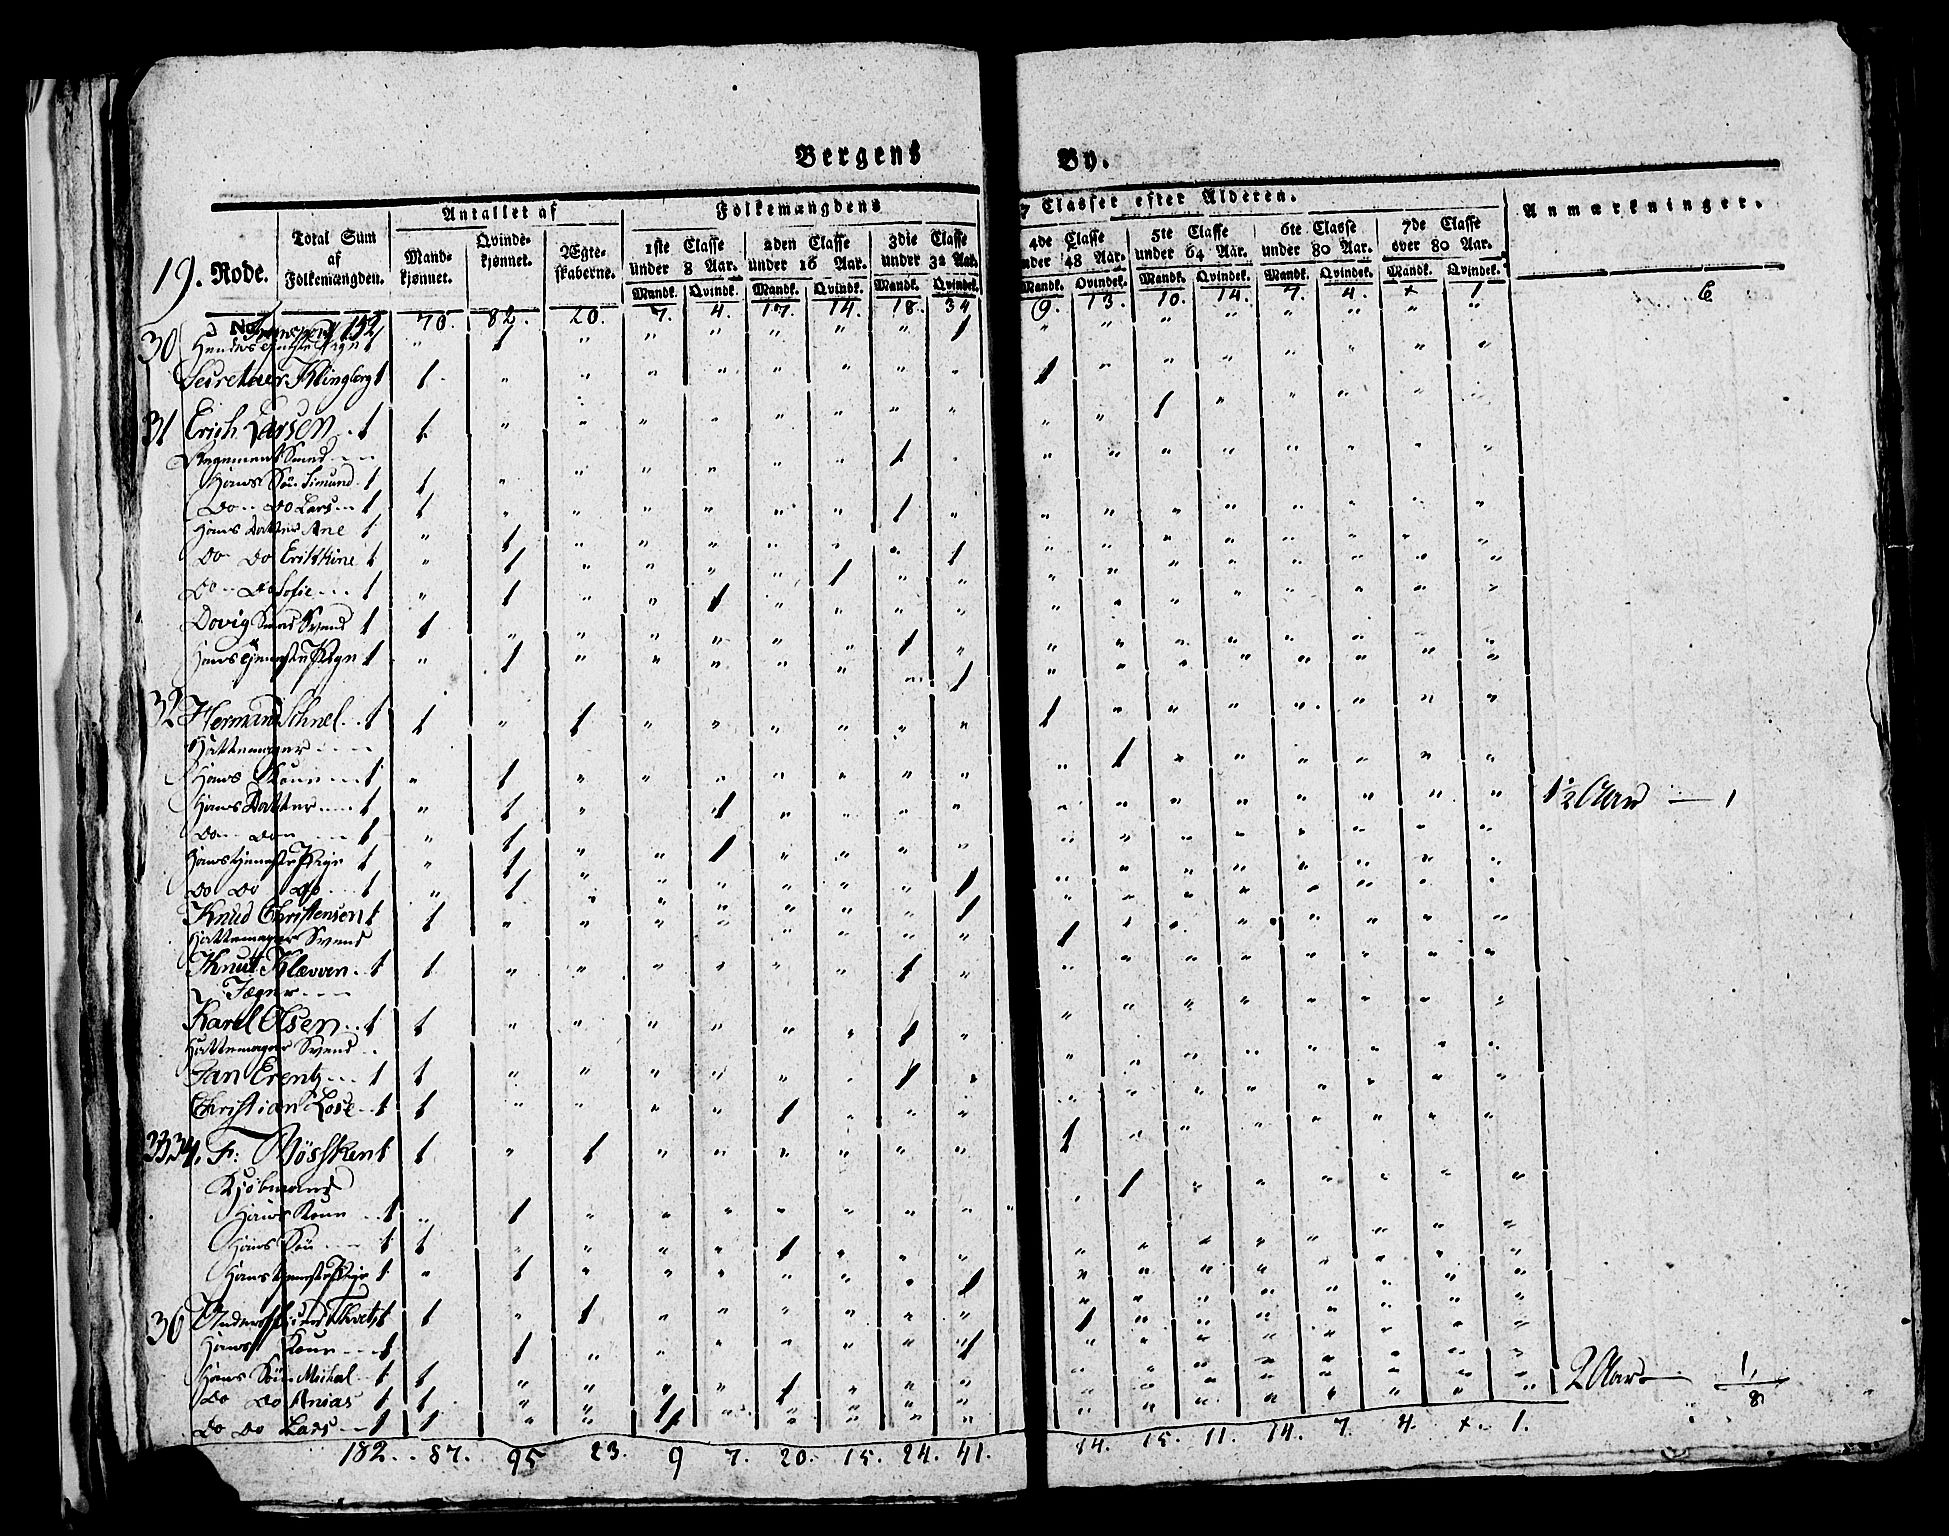 Bergens By.
19. Rode.
Total Sum af Folkemængden.
Antallet af
Mandkjønnet. Qvindekjønnet. Ægteskaberne.
Folkemængdens 7 Classer efter Alderen.
1ste Classe under 8 Aar. 2den Classe under 16 Aar. 3die Classe under 32 Aar. 4de Classe under 48 Aar. 5te Classe under 64 Aar. 6te Classe under 80 Aar. 7de Classe over 80 Aar.
Mandk. Qvindek. Mandk. Qvindek. Mandk. Qvindek. Mandk. Qvindek. Mandk. Qvindek. Mandk. Qvindek. Mandk. Qvindek.
Anmærkninger.
No. Transport 152 70. 82. 20. 7. 4. 17. 14. 18. 34 9. 13. 10. 14. 7. 4. + 1. 6
30 Hendes tjeneste Pige 1 " 1 " " " " " " 1
Secretaer Klingberg 1 1 " " " " " " " " 1
31 Erich Larsen 1 1 " " " " " " " " " " 1
Regiments Smed
Hans Søn Simund 1 1 " " " " " " 1
Do Do Lars 1 1 " " " " " " 1
Hans Datter Ane 1 " 1 " " " " " " 1
Do Do Erikkine 1 " 1 " " " " 1
Do Do Sofie 1 " 1 " " 1
Dovig Smed Svend 1 1 " " " " " " 1
Hans tjeneste Pige 1 " 1 " " " " " " 1
32 Herman Schnel 1 1 " 1 " " " " " " 1
Hattemager
Hans Kone 1 " 1 " " " " " " " " 1
Hans Datter 1 " 1 " " 1 1½ Aar — 1
Do Don 1 " 1 " " 1
Hans tjeneste Pige 1 " 1 " " " " " " 1
Do Do Do 1 " 1 " " " " " " 1
Knud Christensen 1 1 " " " " " " " " 1
Hattemager Svend
Knut Klevven 1 1 " " " " " " 1
Jæger
Karel Olsen 1 1 " " " " " " 1
Hattemager Svend
Jan Erentz 1 1 " " " " " " 1
Christian Lose 1 1 " " " " 1
33, 34, F: Wösshen 1 1 " 1 " " " " " " 1
Kjøbmand
Hans Kone 1 " 1 " " " " " " " " 1
Hans Søn 1 1 " " " " 1
Hans tjeneste Pige 1 " 1 " " " " " " 1
36 1 1 " 1 " " " " " " 1
Hans Kone 1 " 1 " " " " " " 1
Hans Søn Michal 1 1 " " " " 1
Do Do Anias 1 1 " " 1
Do Do Lars 1 1 " " 1 2 Aar 1,
8
182. 87. 95 23. 9 7. 20. 15. 24. 41. 14. 15. 11. 14. 7. 4. +. 1.